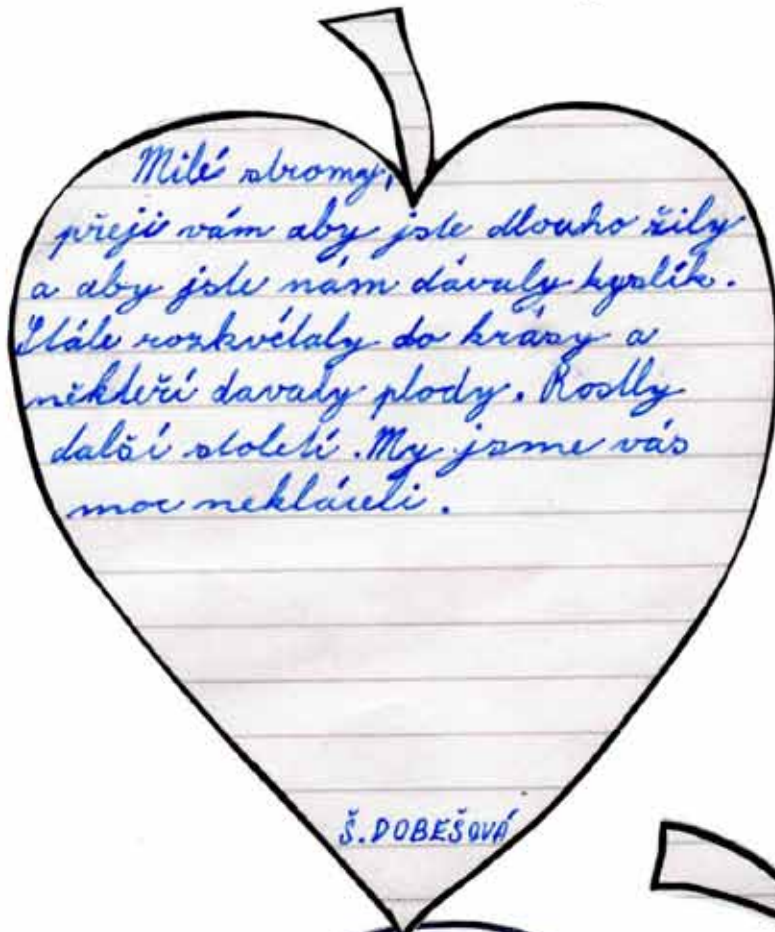 Milé stromy,
přeji vám aby jste dlouho žily
a aby jste nám dávaly kyslík.
Stále rozkvétaly do krásy a
někteří davaly plody. Rostly
další století. My jsme vás
moc nekláceli.
Š. DOBEŠOVÁ